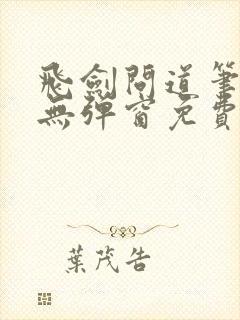 飛劍問道筆
無彈窗免費
葉茂告